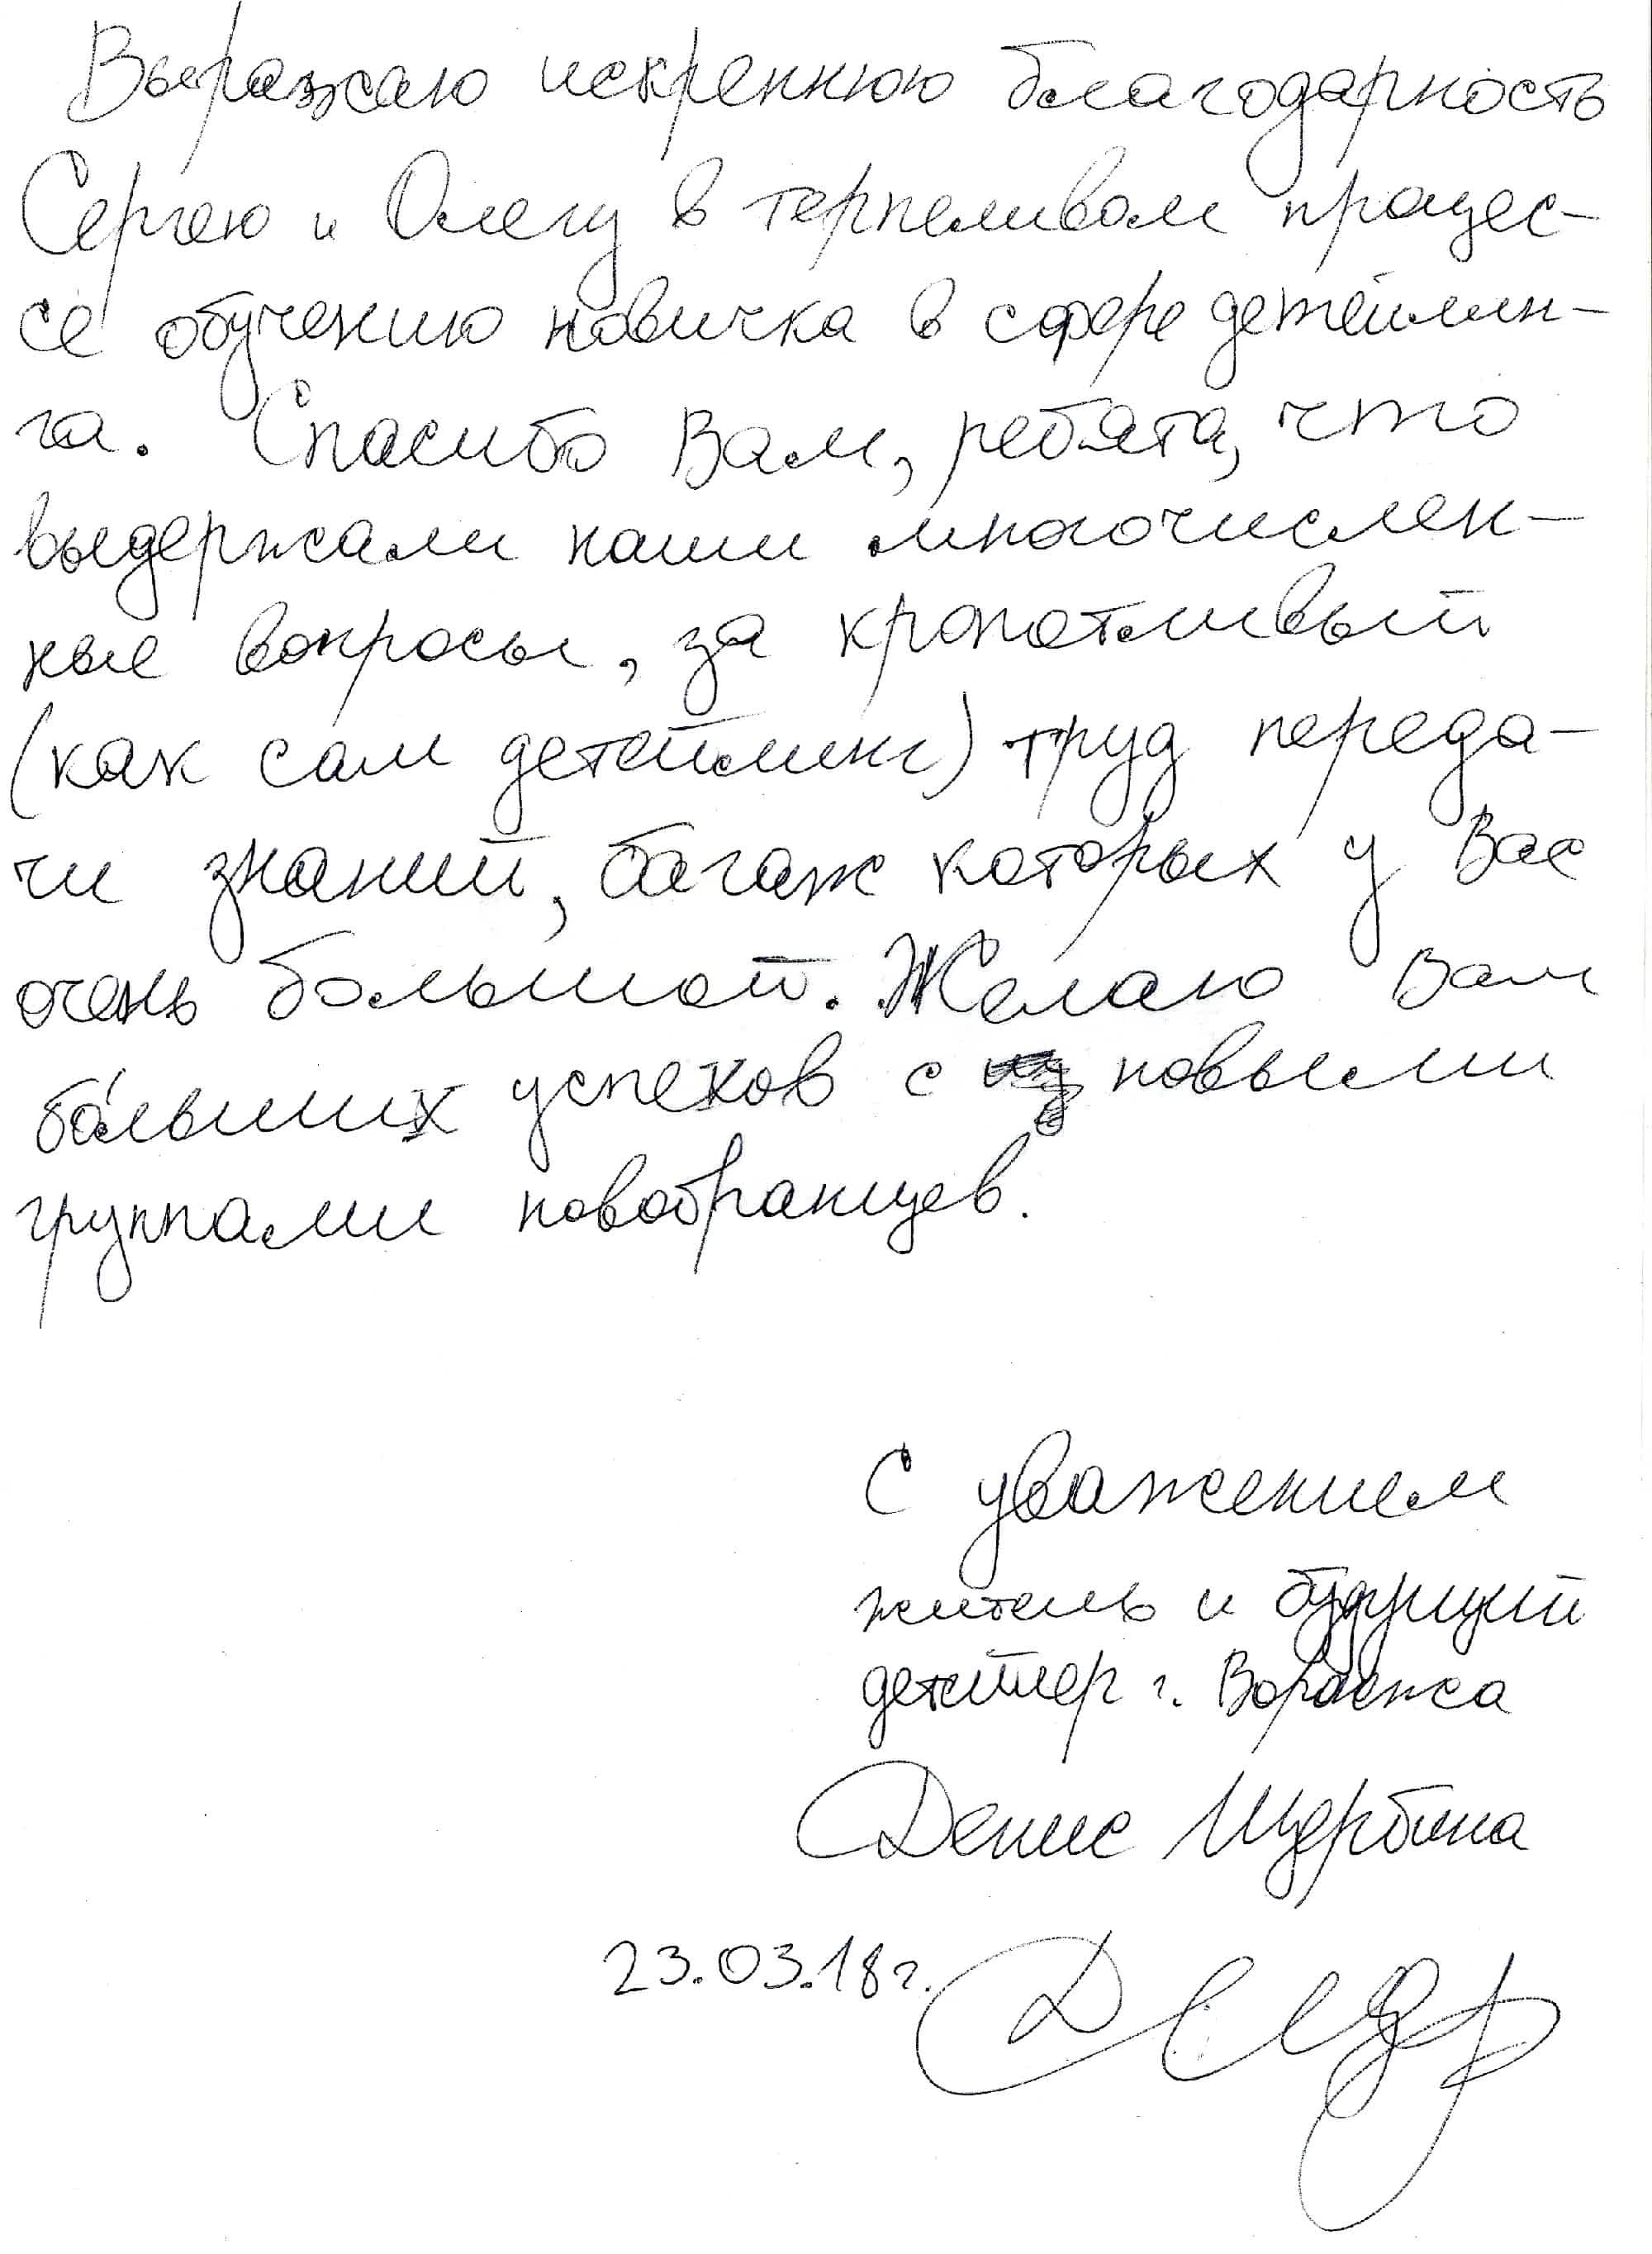 Выражаю искреннюю благодарность
Сергею и Олегу в терпеливом процес-
се обучению новичка в сфере детейлин-
га. Спасибо Вам, ребята, что
выдержали наши многочислен-
ные вопросы, за кропотливый
(как сам детейлинг) труд переда-
чи знаний, багаж которых у Вас
очень большой. Желаю Вам
бо́льших успехов с новыми
группами новобранцев.
С уважением
житель и будущий
детейлер г. Воронежа
Денис Щербина
23.03.18г.